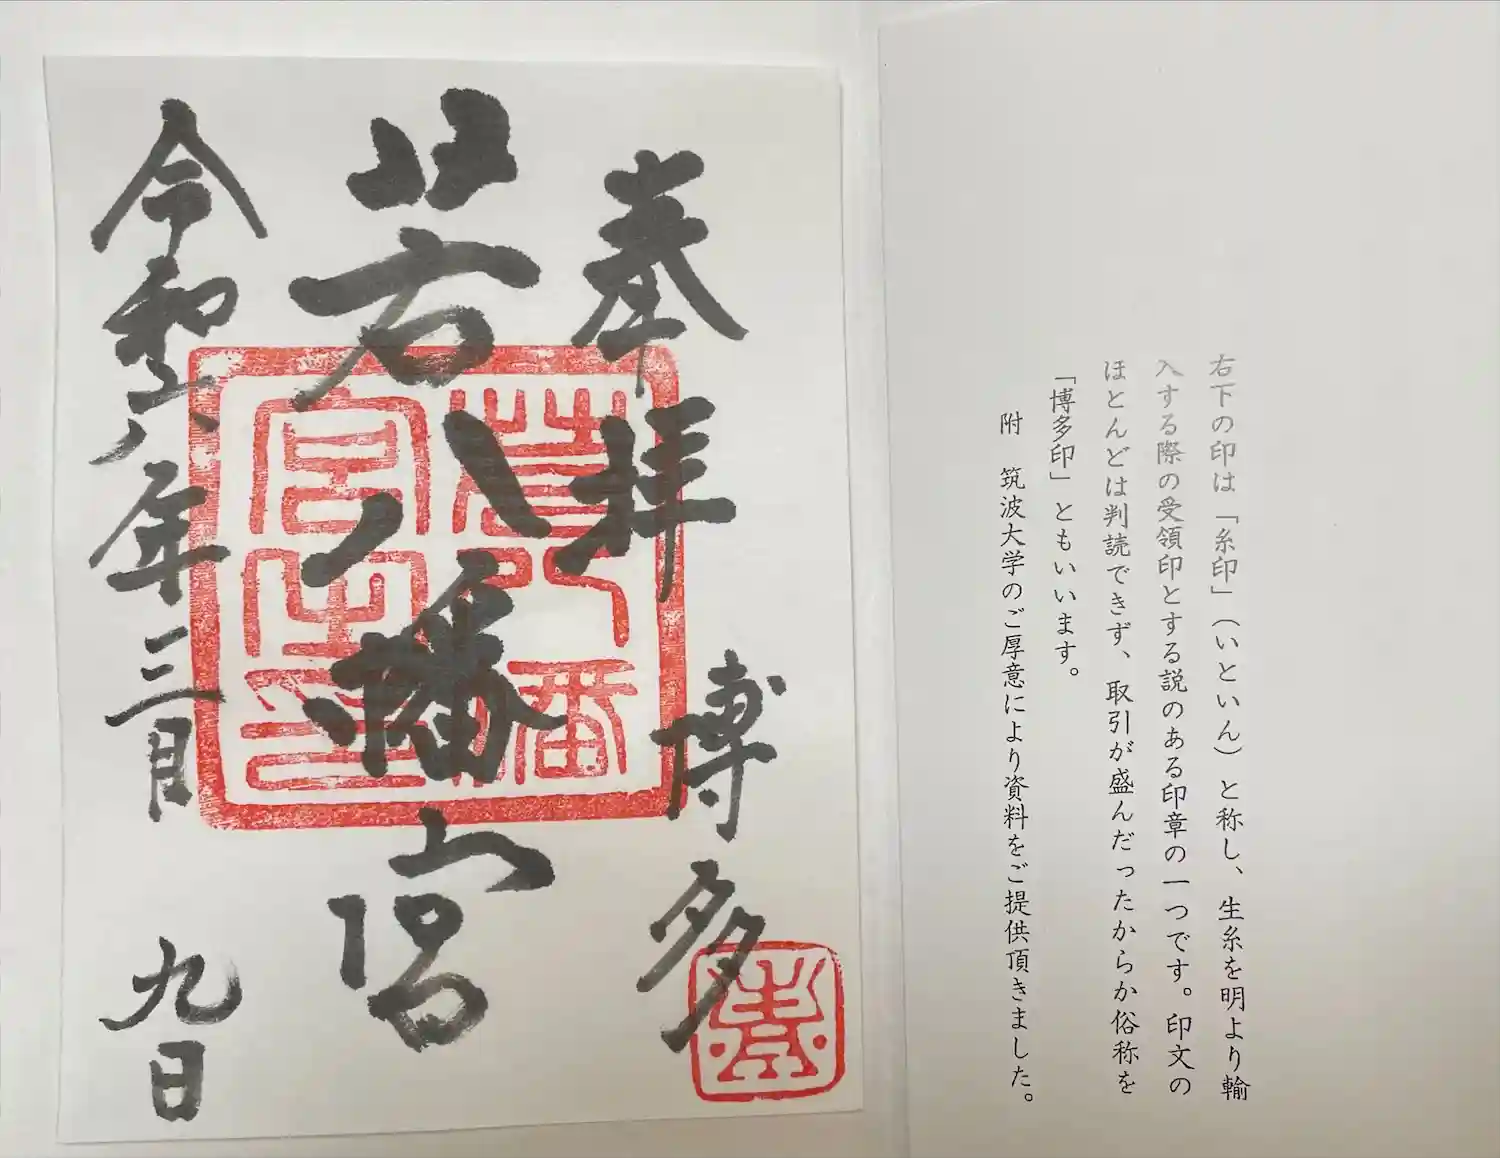 右下の印は「糸印」（いといん）と称し、生糸を明より輸
入する際の受領印とする説のある印章の一つです。印文の
ほとんどは判読できず、取引が盛んだったからか俗称を
「博多印」ともいいます。
附　筑波大学のご厚意により資料をご提供頂きました。
奉拝　博多
若八幡宮
令和六年三月九日